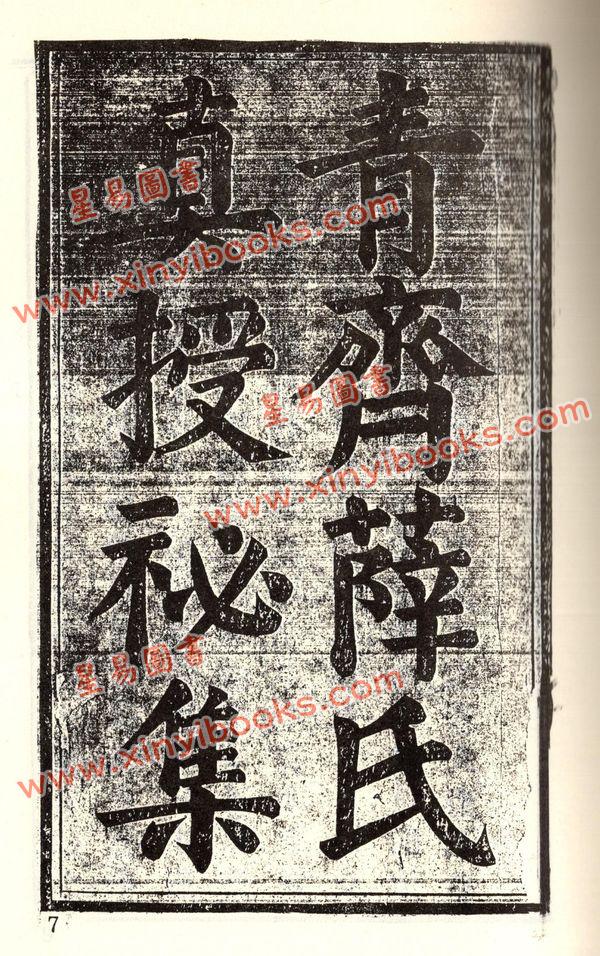 青齊薛氏
真授祕集
星易圖書
www.xinyibooks.com
星易圖書
www.xinyibooks.com
星易圖書
www.xinyibooks.com
7